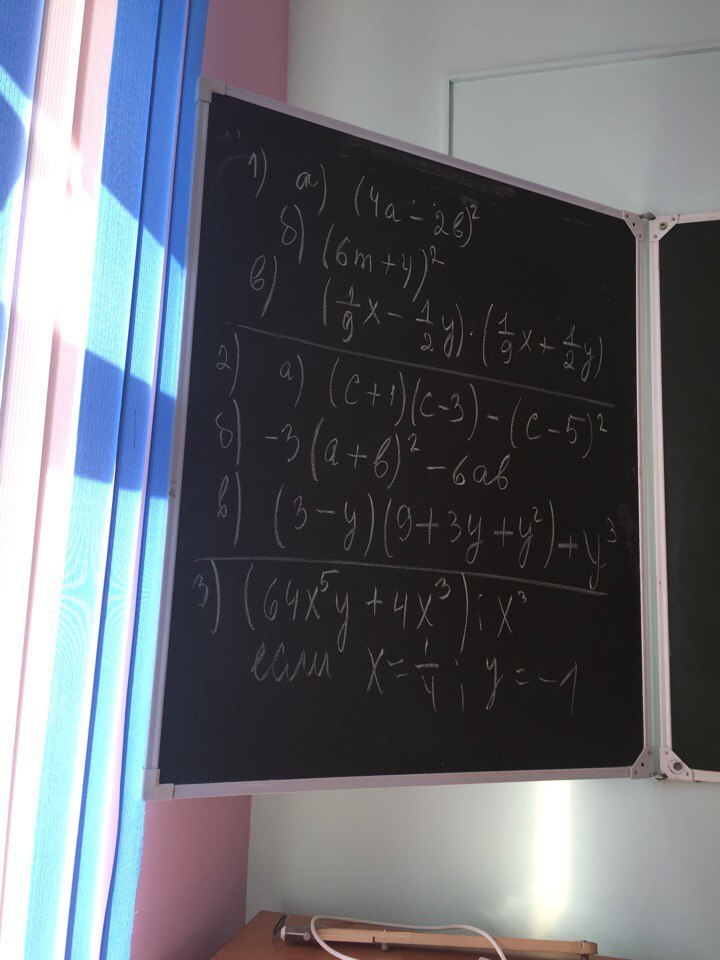 1) а) (4a - 2b)²
б) (6m + 4)²
в) (1/9 x - 1/2 y) · (1/9 x + 1/2 y)
2) а) (c + 1)(c - 3) - (c - 5)²
б) -3(a + b)² - 6ab
в) (3 - y)(9 + 3y + y²) + y³
3) (64x⁵y + 4x³) : x³
если x = 1/4 ; y = -1